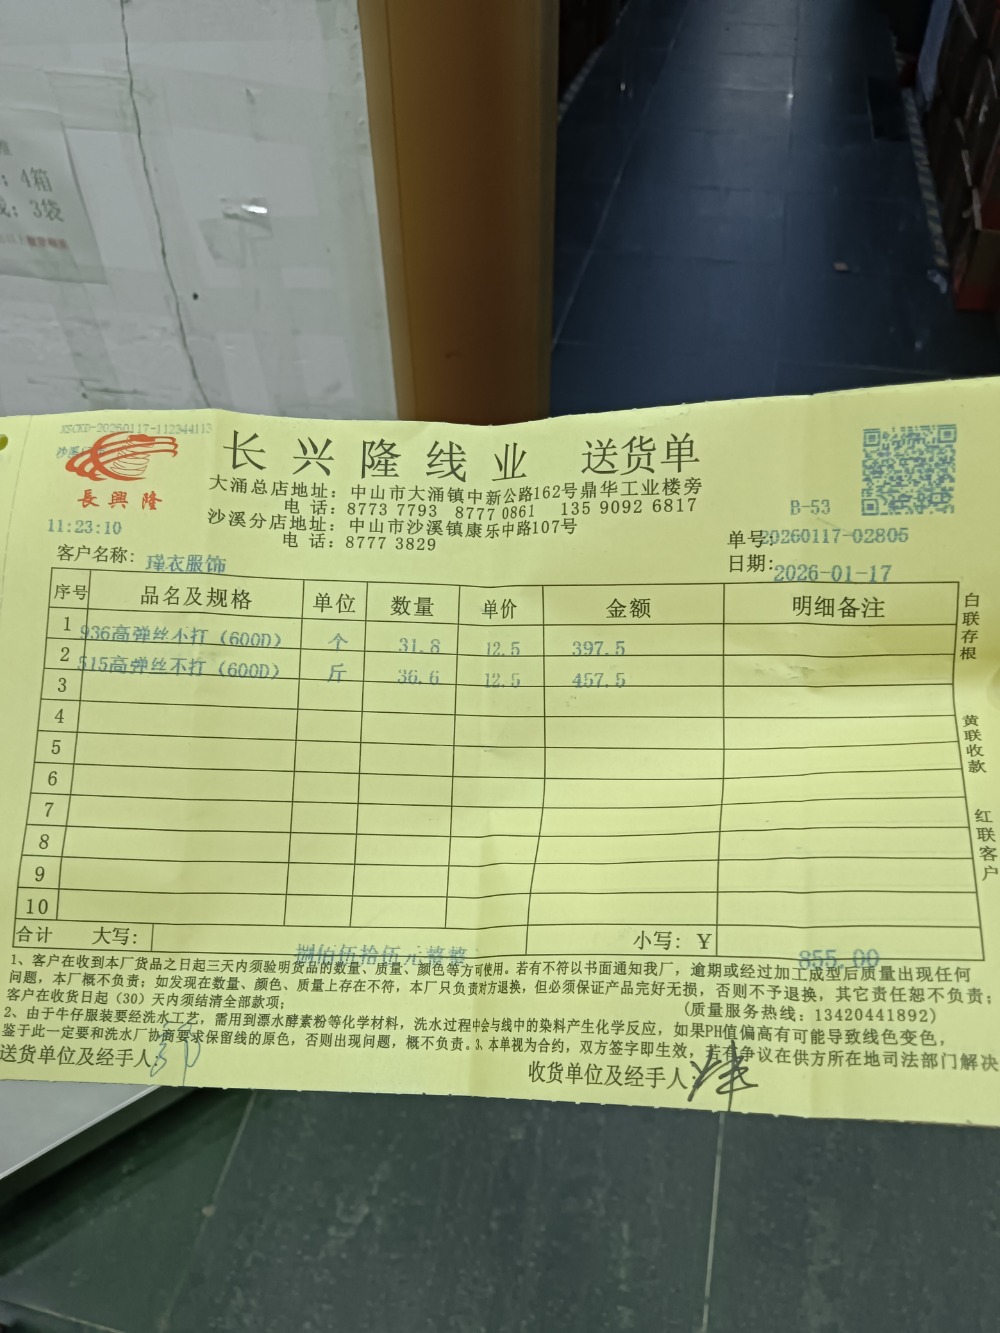 4箱
3袋
XSCKD-20260117-112344113
沙溪
長興隆
长兴隆线业 送货单
大涌总店地址：中山市大涌镇中新公路162号鼎华工业楼旁
电 话：8773 7793 8777 0861 135 9092 6817
沙溪分店地址：中山市沙溪镇康乐中路107号
电 话：8777 3829
11:23:10
B-53
单号：20260117-02806
客户名称：瑾衣服饰
日期：2026-01-17
序号 品名及规格 单位 数量 单价 金额 明细备注
1 936高弹丝不打（600D） 个 31.8 12.5 397.5
2 515高弹丝不打（600D） 斤 36.6 12.5 457.5
3
4
5
6
7
8
9
10
合计 大写：捌佰伍拾伍元整整 小写：¥ 855.00
白联存根
黄联收款
红联客户
1、客户在收到本厂货品之日起三天内须验明货品的数量、质量、颜色等方可使用。若有不符以书面通知我厂，逾期或经过加工成型后质量出现任何
问题，本厂概不负责；如发现在数量、颜色、质量上存在不符，本厂只负责对方退换，但必须保证产品完好无损，否则不予退换，其它责任恕不负责；
客户在收货日起（30）天内须结清全部款项； (质量服务热线：13420441892)
2、由于牛仔服装要经洗水工艺，需用到漂水酵素粉等化学材料，洗水过程中会与线中的染料产生化学反应，如果PH值偏高有可能导致线色变色，
鉴于此一定要和洗水厂协商要求保留线的原色，否则出现问题，概不负责。3、本单视为合约，双方签字即生效，若有争议在供方所在地司法部门解决
送货单位及经手人：
收货单位及经手人